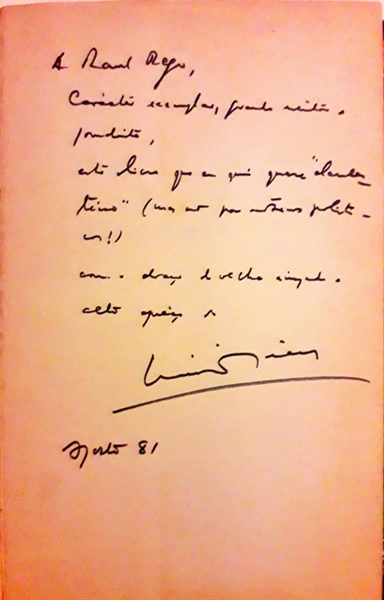 A Raul Rego,
Carácter exemplar, grande escritor e
jornalista,
este livro que eu quis quase "clandes-
tino" (mas não por motivos políti-
cos!)
com o abraço de velha amizade e
alto apreço de
Agosto 81